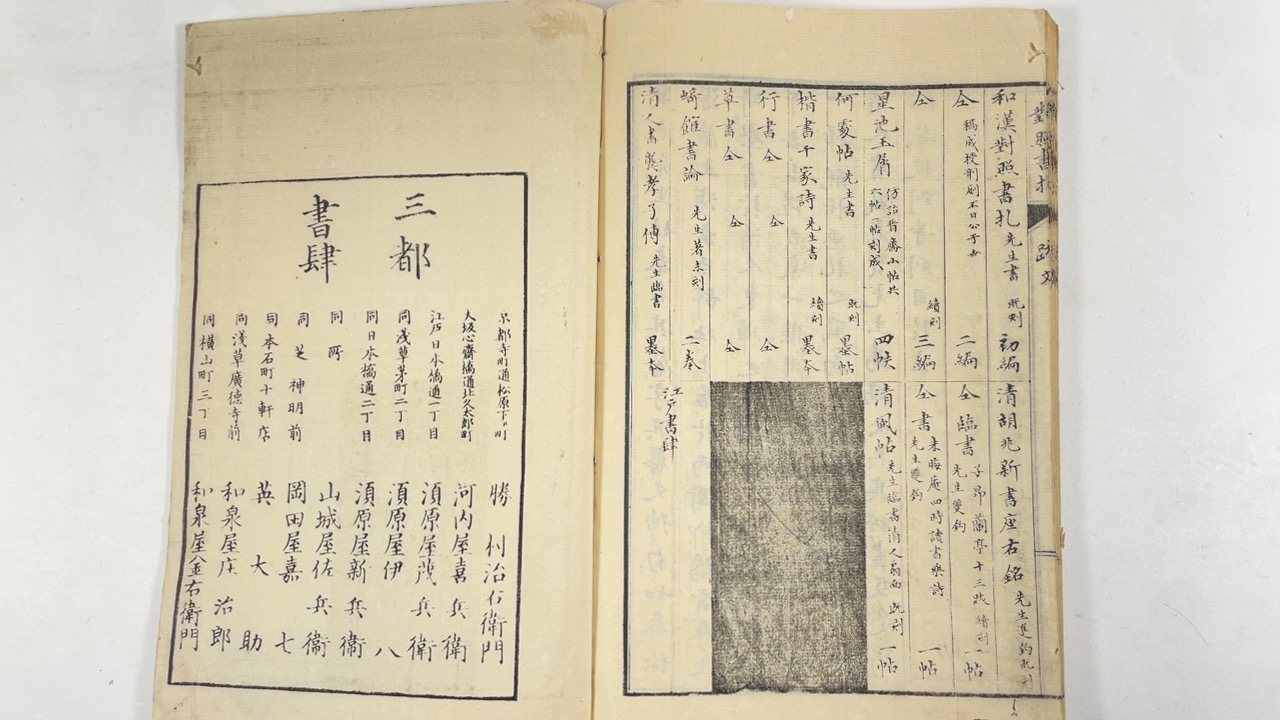 和漢對照書札 先生書 既刻 初編
仝 稿成授剞劂不日公于世 二編
仝 續刻 三編
星池玉屑 仿詒晋齋小帖共六帖刻成 四帙
何處帖 先生書 既刻 墨帖
楷書千家詩 先生書 續刻 墨本
行書 仝 仝 仝
草書 仝 仝 仝
崎館書論 先生著未刻 二卷
清人書龔孝子傳 先生臨書 墨本
清胡兆新書座右銘 先生雙鉤既刻
仝 臨書 子昂蘭亭十三跋 先生雙鉤 續刻 一帖
仝 書 朱晦庵四時讀書樂詩 先生雙鉤 一帖
清風帖 先生臨書清人扇面 既刻 一帖
江戸書肆
三都
書肆
京都寺町通松原下ル町 勝村治右衛門
大坂心齋橋通北久太郎町 河内屋喜兵衛
江戸日本橋通一丁目 須原屋茂兵衛
同浅草茅町二丁目 須原屋伊八
同日本橋通二丁目 須原屋新兵衛
同所 山城屋佐兵衛
同芝神明前 岡田屋嘉七
同本石町十軒店 英大助
同浅草廣徳寺前 和泉屋庄治郎
同横山町三丁目 和泉屋金右衛門